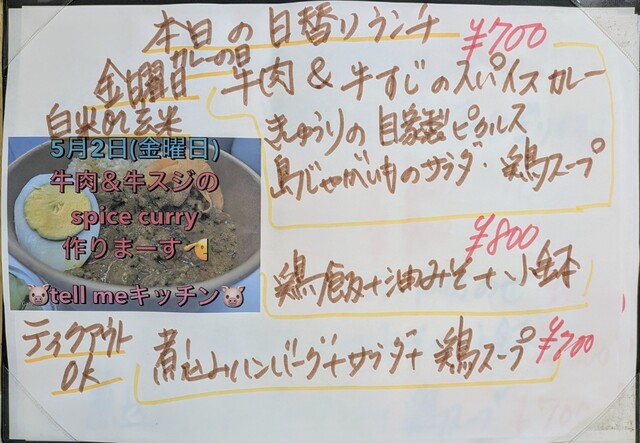 本日の日替りランチ ¥700
カレーの日
金曜日 牛肉&牛すじのスパイスカレー
白米or玄米 きゅうりの自家製ピクルス
島じゃがいものサラダ・鶏スープ
5月2日(金曜日)
牛肉&牛スジの
spice curry
作りまーす
tell meキッチン
¥800
鶏飯+油みそ+小鉢
テイクアウト
OK
煮込みハンバーグ+サラダ+鶏スープ ¥700